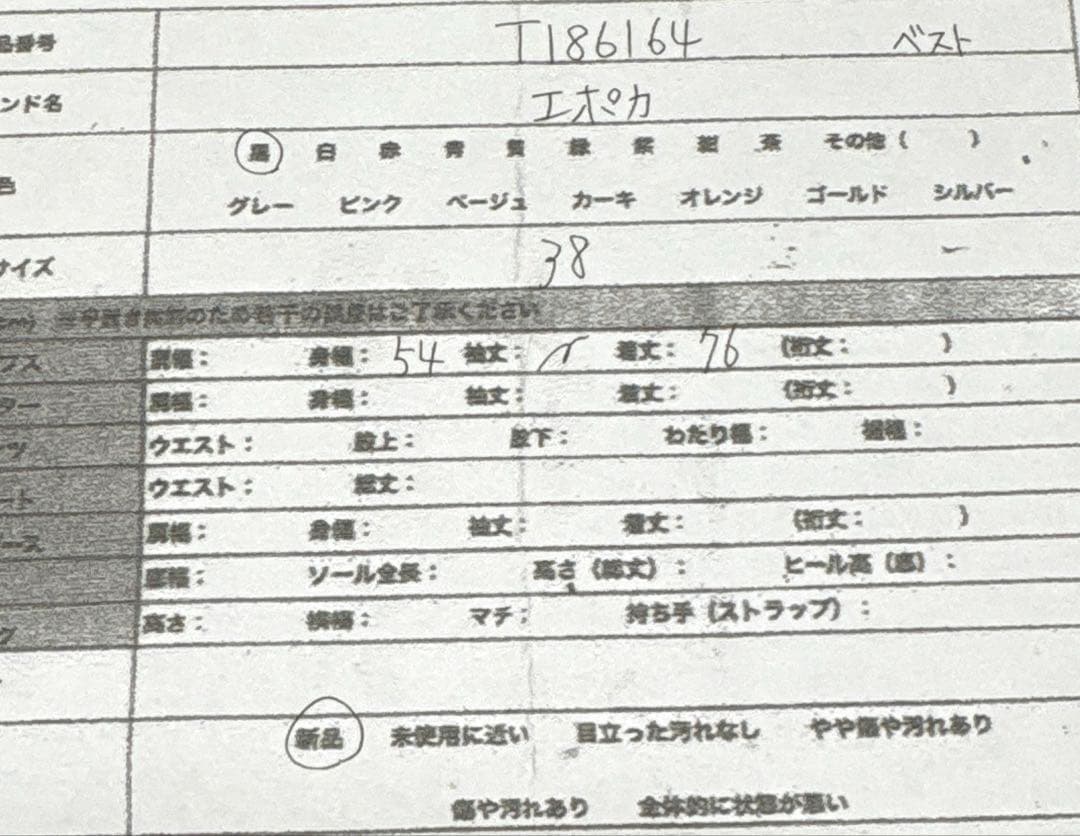 品番号 T186164 ベスト
ンド名 エポカ
黒 白 赤 青 黄 緑 紫 紺 茶 その他（ ）
色
グレー ピンク ベージュ カーキ オレンジ ゴールド シルバー
サイズ 38 -
cm) ※平置き採寸のため若干の誤差はご了承ください
プス 肩幅： 身幅：54 袖丈： 着丈：76 (裄丈： )
ター 肩幅： 身幅： 袖丈： 着丈： (裄丈： )
ンツ ウエスト： 股上： 股下： わたり幅： 裾幅：
ート ウエスト： 総丈：
ース 肩幅： 身幅： 袖丈： 着丈： (裄丈： )
底幅： ソール全長： 高さ（総丈）： ヒール高（底）：
グ 高さ： 横幅： マチ： 持ち手（ストラップ）：
新品 未使用に近い 目立った汚れなし やや傷や汚れあり
傷や汚れあり 全体的に状態が悪い